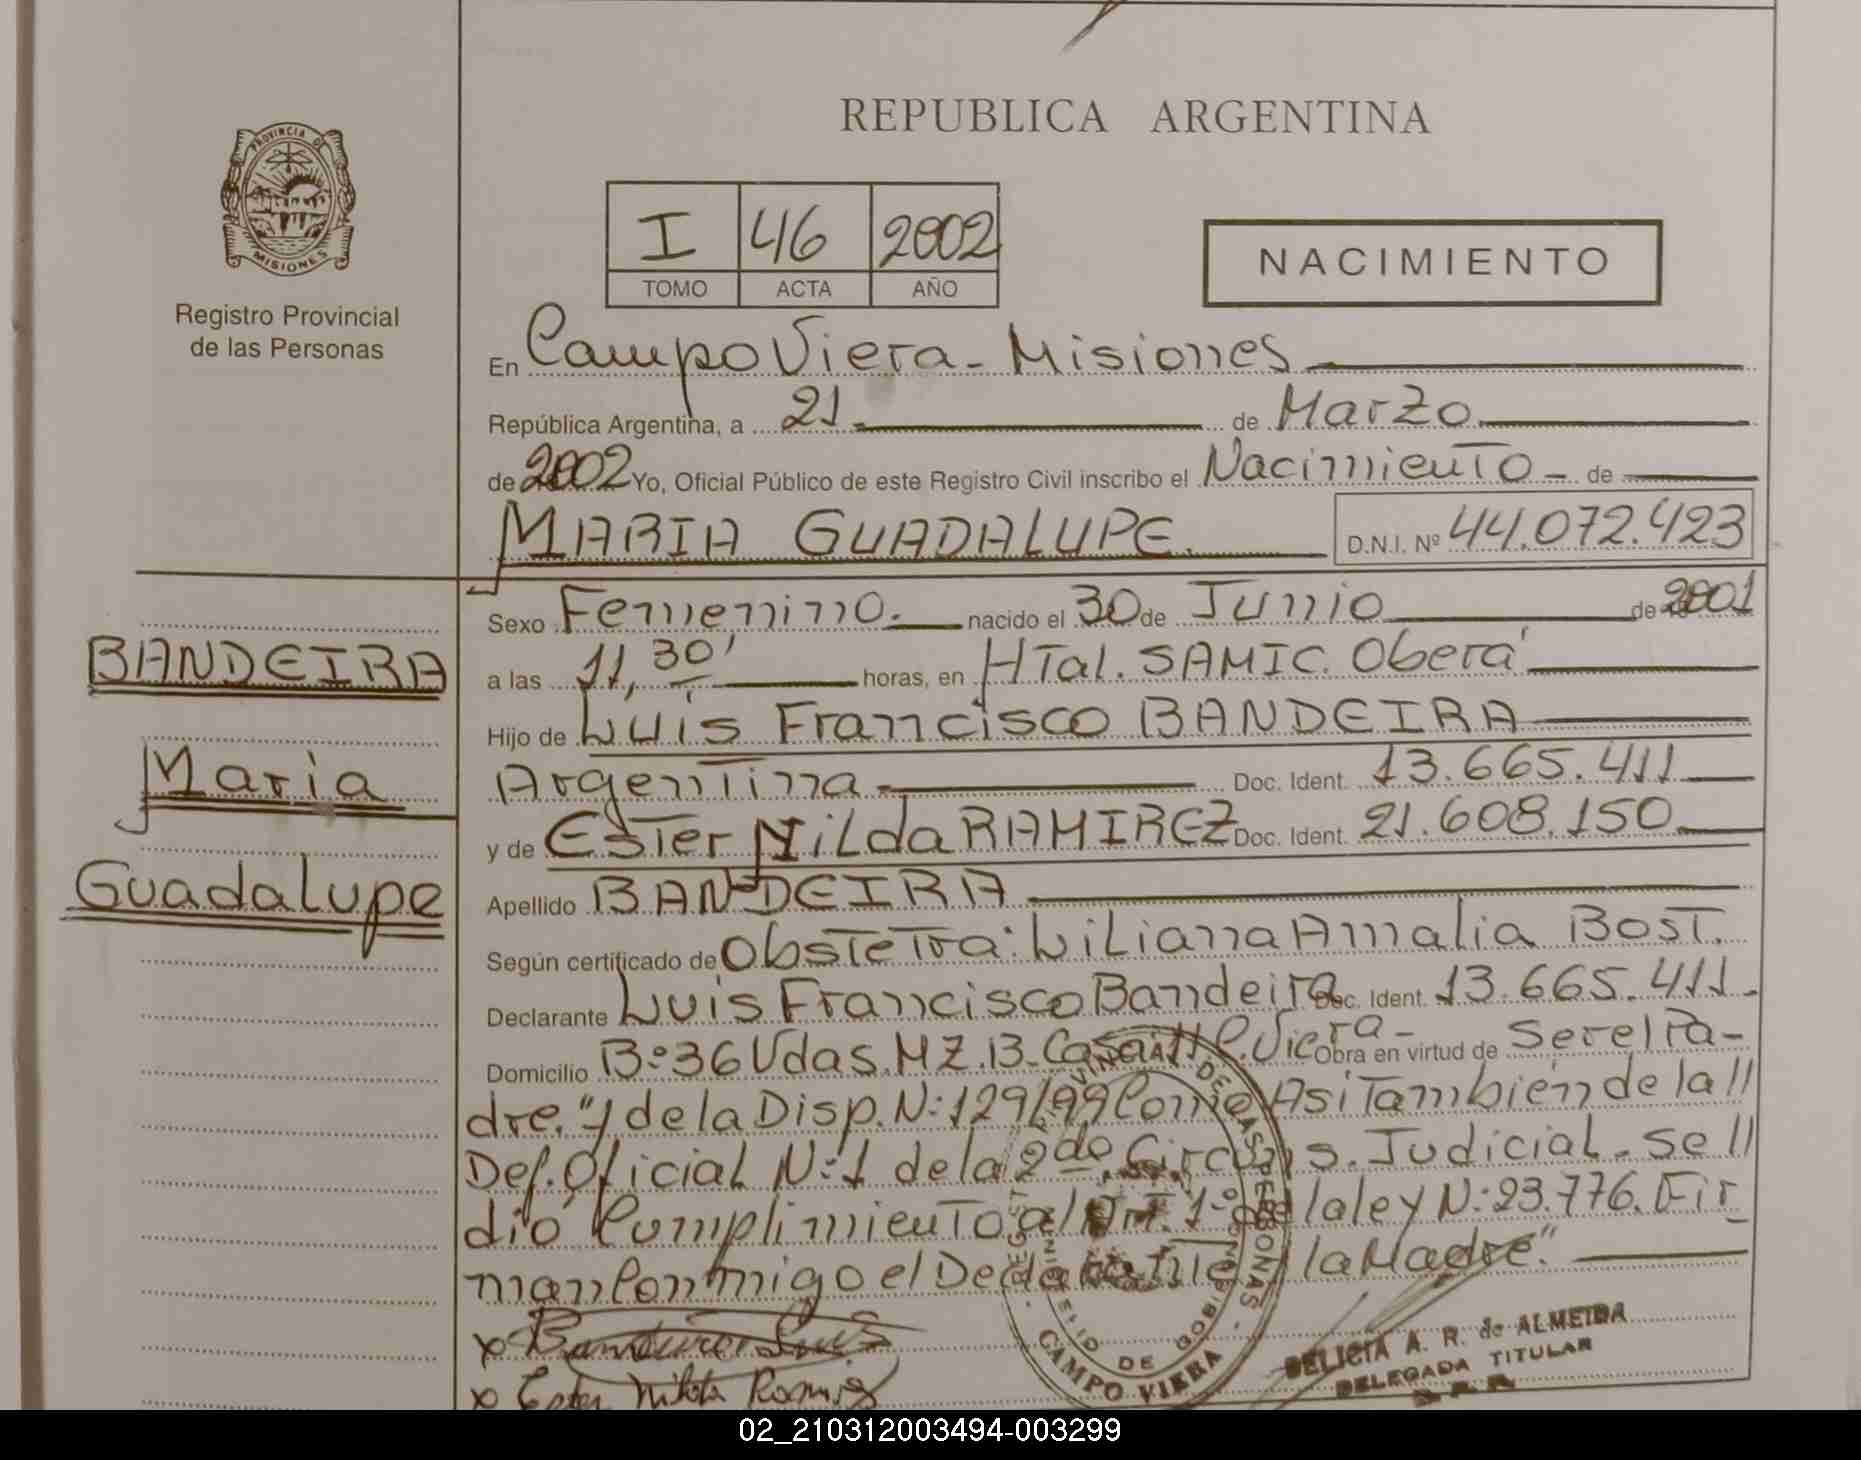 REPUBLICA ARGENTINA
PROVINCIA DE
MISIONES
Registro Provincial
de las Personas
I 46 2002
TOMO ACTA AÑO
NACIMIENTO
En Campo Viera - Misiones
República Argentina, a 21 de Marzo
de 2002 Yo, Oficial Público de este Registro Civil inscribo el Nacimiento - de
MARIA GUADALUPE. D.N.I. Nº 44.072.423
BANDEIRA
Maria
Guadalupe
Sexo Femenino. nacido el 30 de Junio de 2001
a las 11,30' horas, en HTal. SAMIC. Oberá
Hijo de Luis Francisco BANDEIRA
Argentina Doc. Ident. 13.665.411
y de Ester Nilda RAMIREZ Doc. Ident. 21.608.150
Apellido BANDEIRA
Según certificado de Obstetra: Liliana Amalia Bost.
Declarante Luis Francisco Bandeira Doc. Ident. 13.665.411.
Domicilio B:º 36 Vdas. MZ. 13- Casa 11 C. Viera - Obra en virtud de Ser el Pa-
dre. "y de la Disp. N: 129/99 Como Asi También de la //
Def. Oficial N: 1 de la 2da. Circuns. Judicial. Se //
dió Cumplimiento al Art. 1º de la ley N: 23.776. Fir_
man Conmigo el Declarante y la Madre."
x Bandeira Luis
x Ester Nilda Ramirez
CAMPO VIERA
DELICIA A. R. de ALMEIDA
DELEGADA TITULAR
02_210312003494-003299